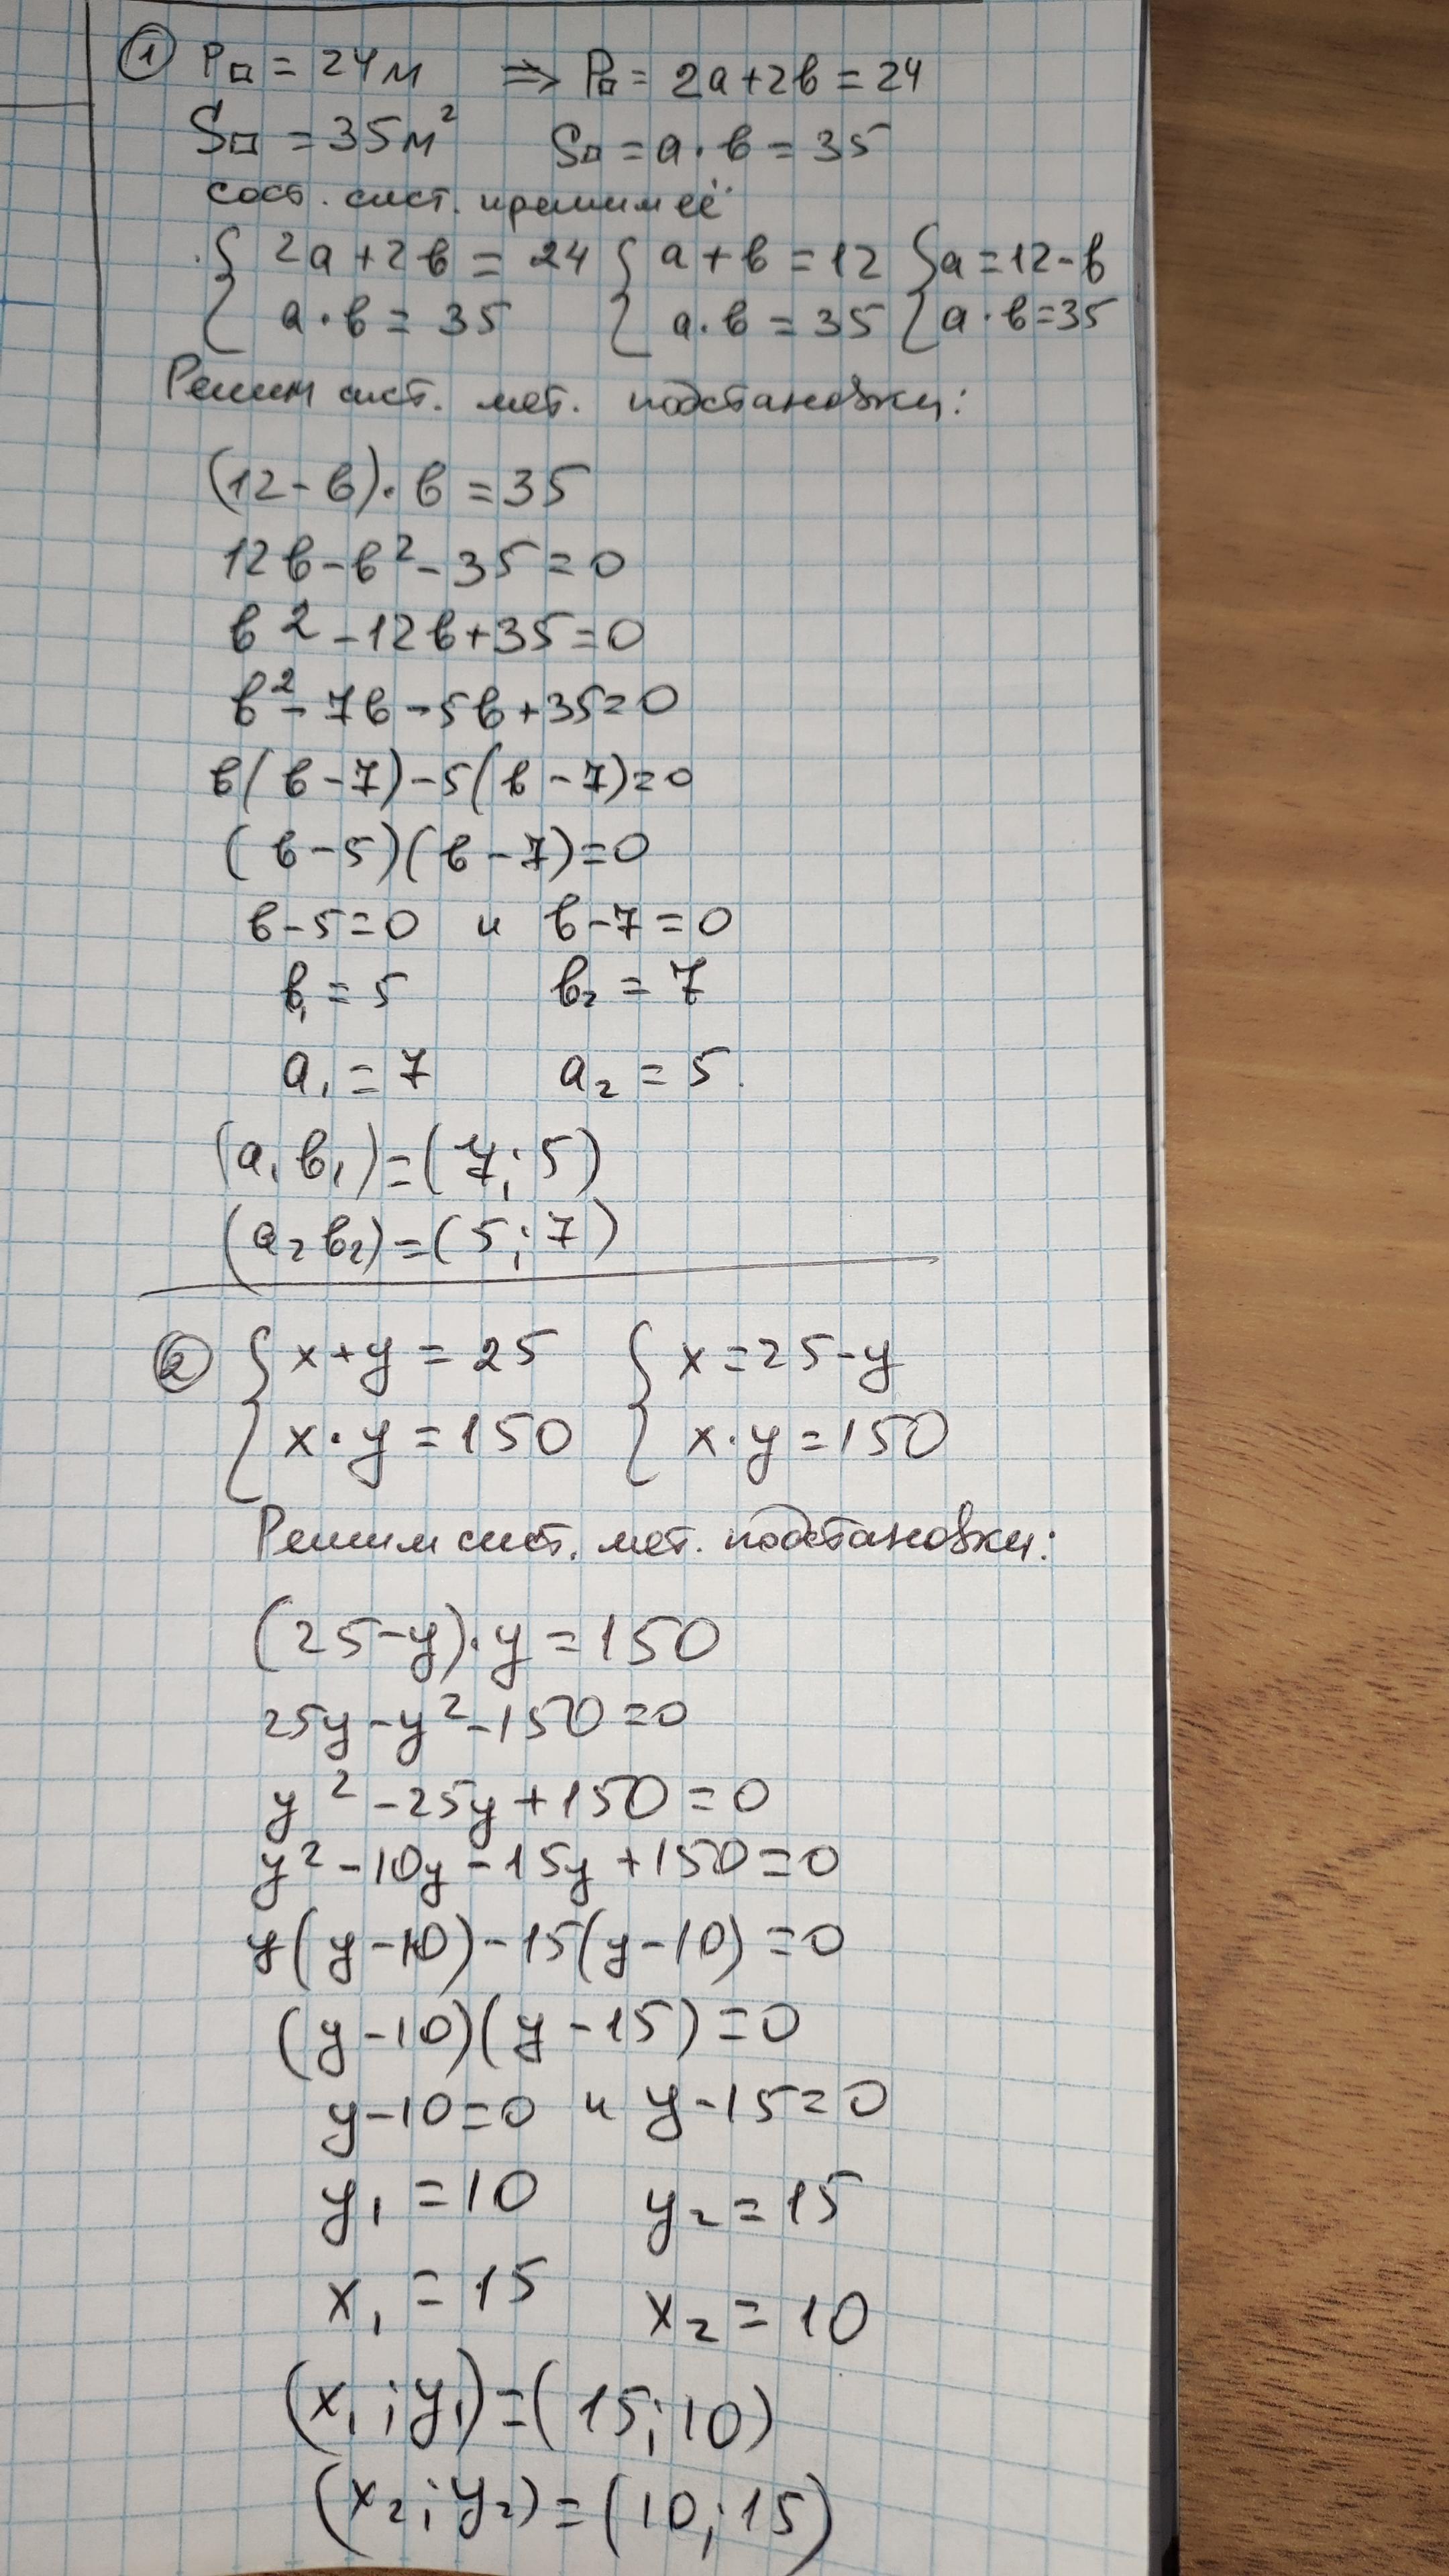 ① P▭ = 24м ⇒ P▭ = 2a+2b = 24
S▭ = 35м² S▭ = a·b = 35
сост. сист. и решим её
{ 2a+2b = 24 { a+b = 12 { a = 12-b
{ a·b = 35 { a·b = 35 { a·b = 35
Решим сист. мет. подстановки:
(12-b)·b = 35
12b-b²-35=0
b²-12b+35=0
b²-7b-5b+35=0
b(b-7)-5(b-7)=0
(b-5)(b-7)=0
b-5=0 и b-7=0
b₁ = 5 b₂ = 7
a₁ = 7 a₂ = 5.
(a₁ b₁)=(7; 5)
(a₂ b₂)=(5; 7)
② { x+y = 25 { x=25-y
{ x·y = 150 { x·y = 150
Решим сист. мет. подстановки:
(25-y)·y = 150
25y-y²-150=0
y²-25y+150=0
y²-10y-15y+150=0
y(y-10)-15(y-10)=0
(y-10)(y-15)=0
y-10=0 и y-15=0
y₁ = 10 y₂ = 15
x₁ = 15 x₂ = 10
(x₁; y₁)=(15; 10)
(x₂; y₂)=(10; 15)